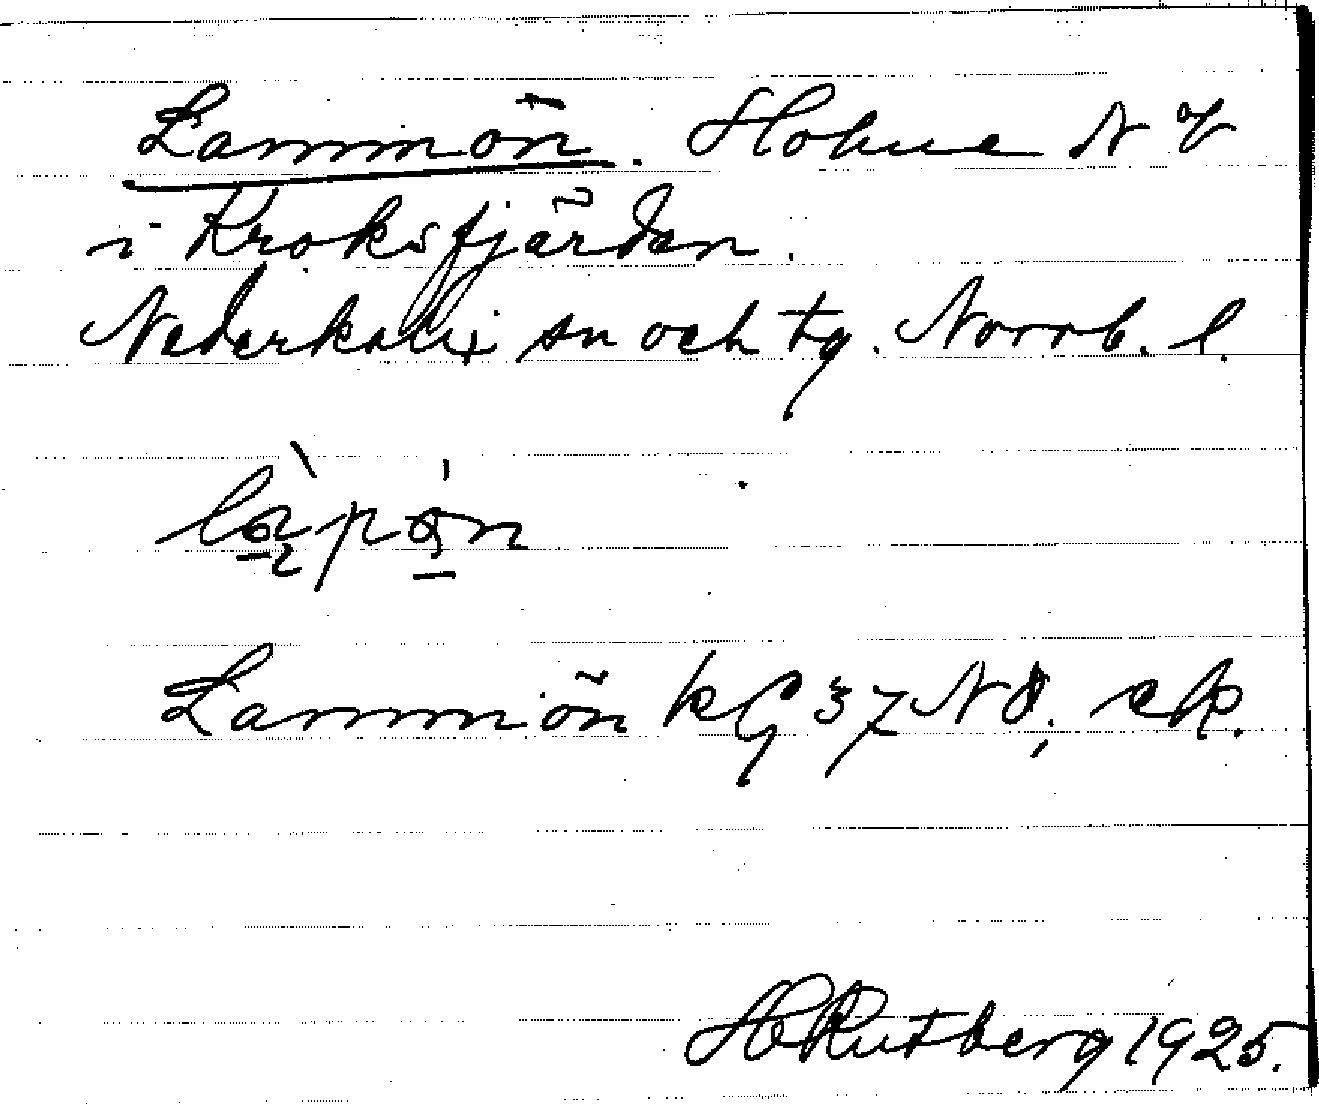 Lammön. Holme N V
i Kroksfjärden.
Nederkalix sn och tg. Norrb. l.
Lammön kG 37 NO, ek.
H Rutberg 1925.